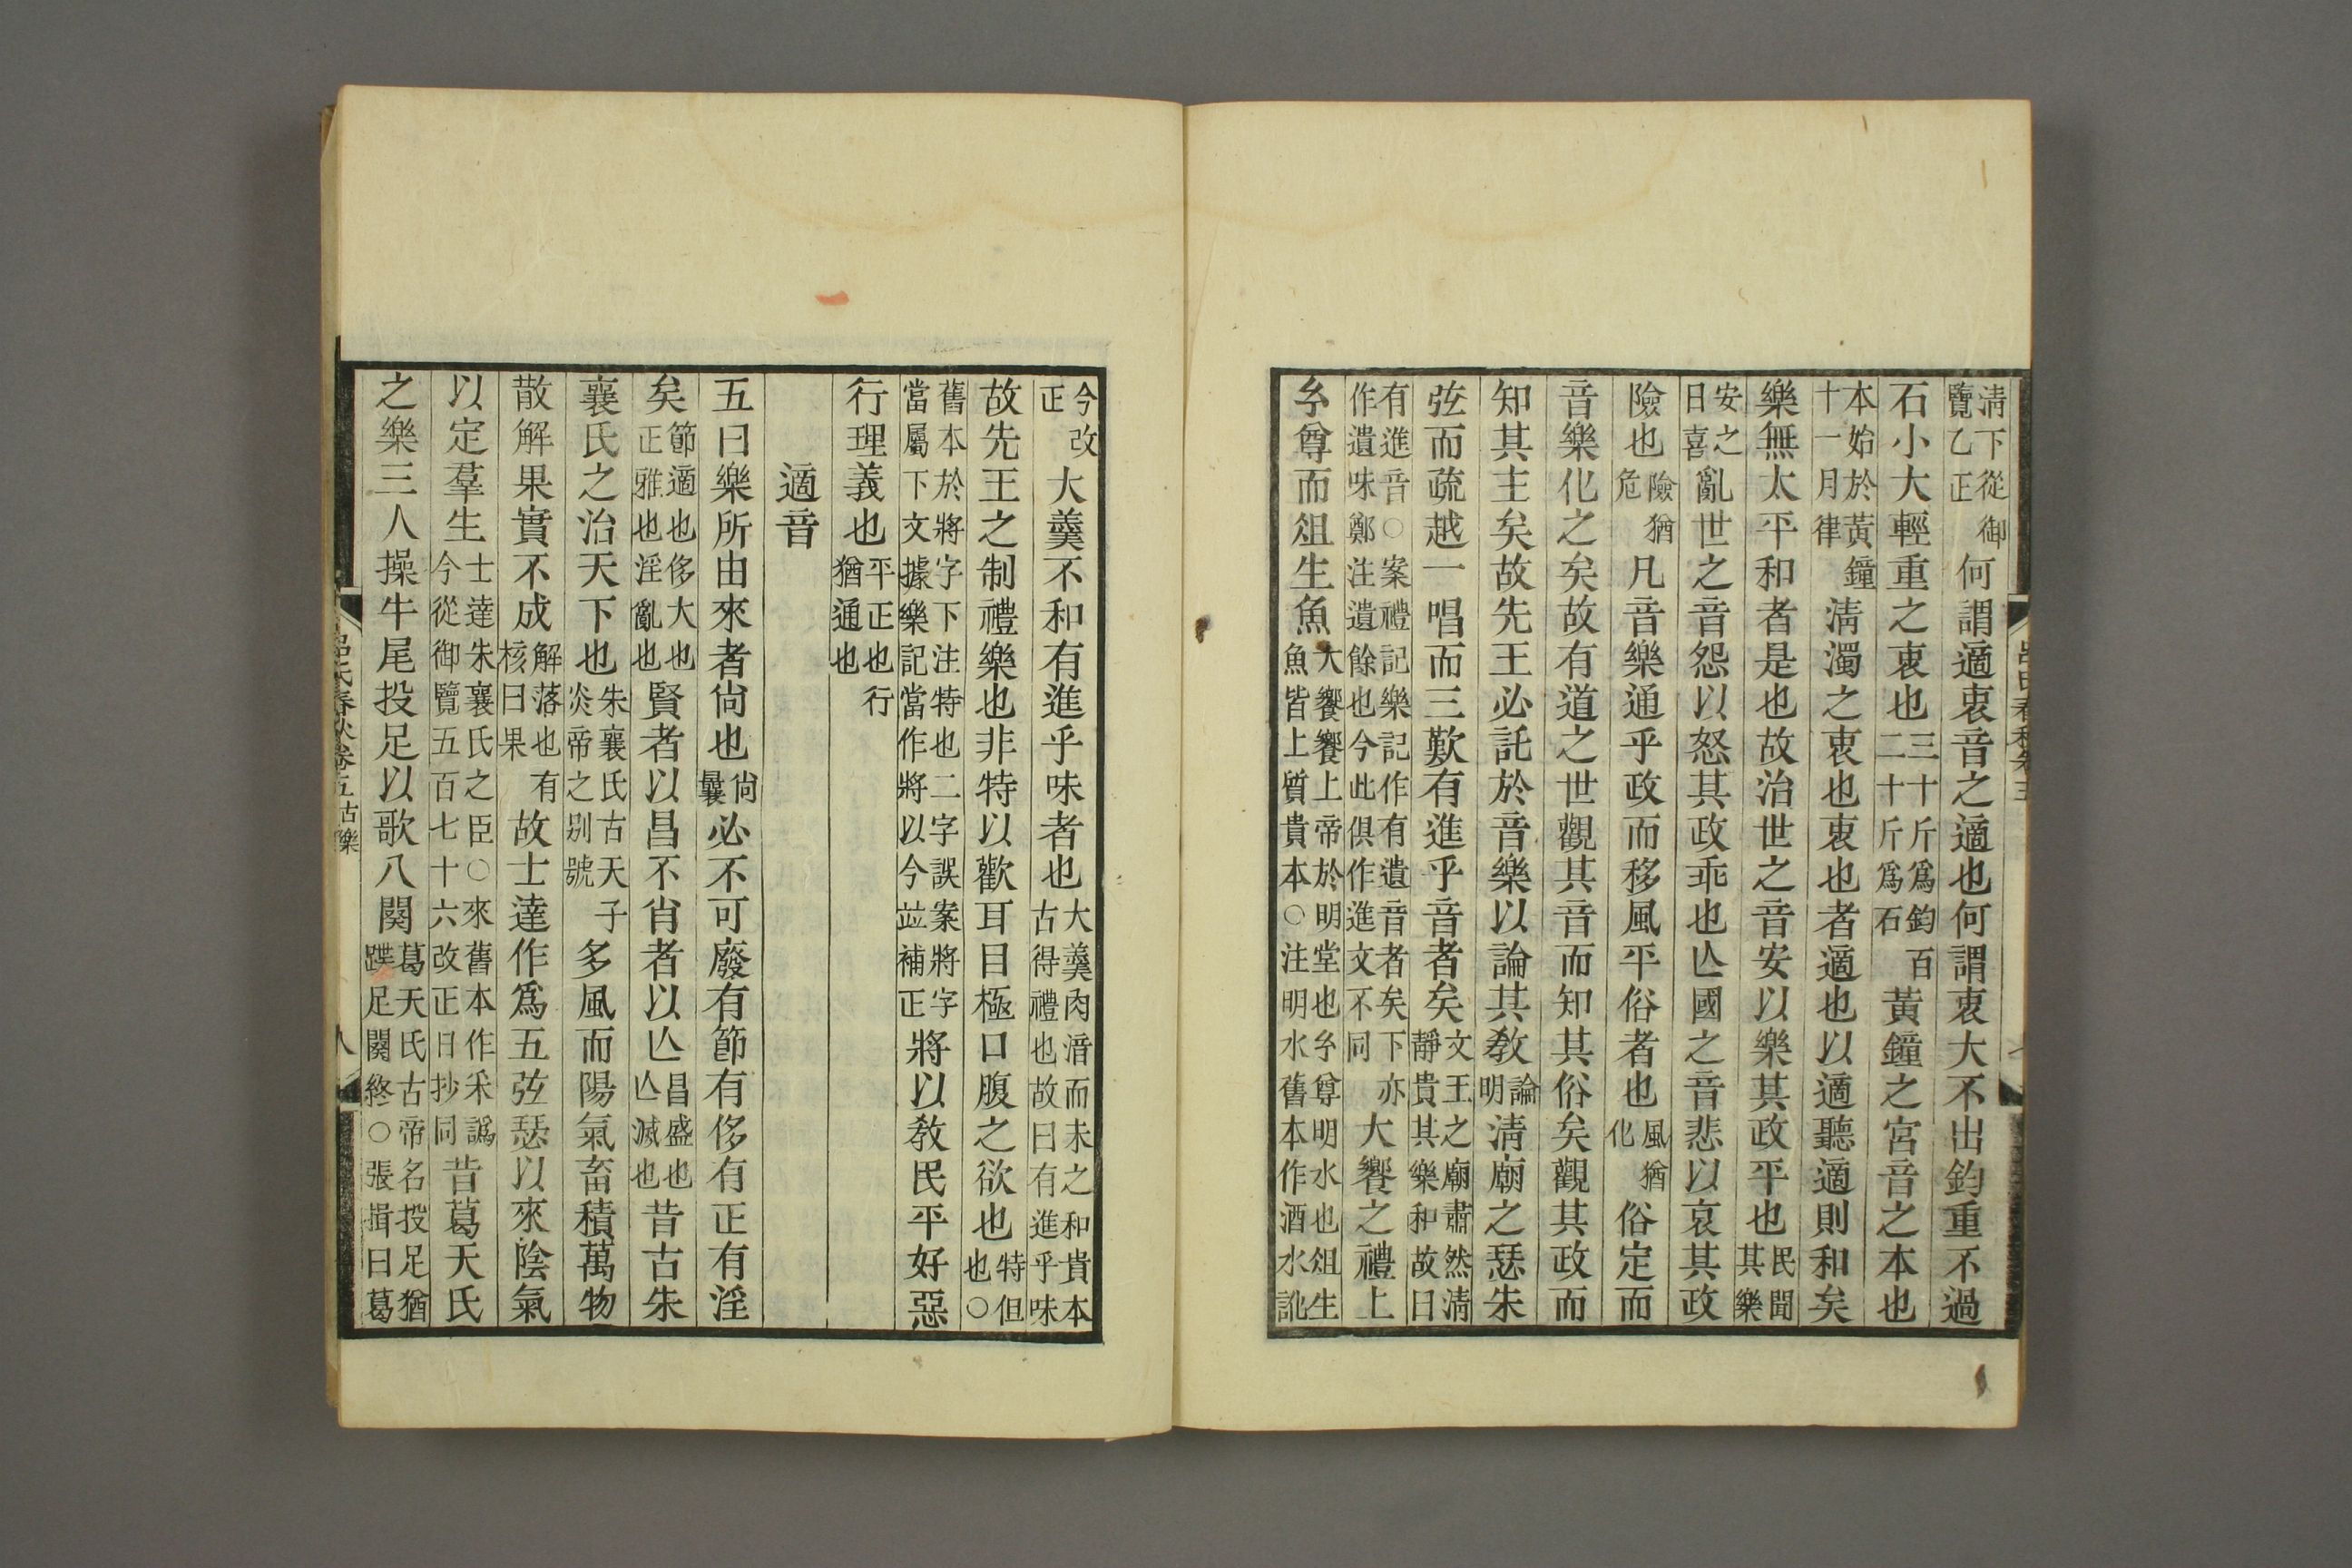 淸下從御覽乙正何謂適衷音之適也何謂衷大不出鈞重不過
石小大輕重之衷也三十斤爲鈞百二十斤爲石黃鐘之宮音之本也
本始於黃鐘十一月律淸濁之衷也衷也者適也以適聽適則和矣
樂無太平和者是也故治世之音安以樂其政平也民聞其樂
安之曰喜亂世之音怨以怒其政乖也亾國之音悲以哀其政
險也險猶危凡音樂通乎政而移風平俗者也風猶化俗定而
音樂化之矣故有道之世觀其音而知其俗矣觀其政而
知其主矣故先王必託於音樂以論其敎論明淸廟之瑟朱
弦而疏越一唱而三歎有進乎音者矣文王之廟肅然淸靜貴其樂和故曰
有進音○案禮記樂記作有遺音者矣下亦作遺味鄭注遺餘也今此俱作進文不同大饗之禮上
𤣥尊而俎生魚大饗饗上帝於明堂也𤣥尊明水也俎生魚皆上質貴本○注明水舊本作酒水訛
今改正大羹不和有進乎味者也大羹肉湆而未之和貴本古得禮也故曰有進乎味
故先王之制禮樂也非特以歡耳目極口腹之欲也特但也○
舊本於將字下注特也二字誤案將字當屬下文據樂記當作將以今竝補正將以敎民平好惡
行理義也平正也行猶通也
適音
五曰樂所由來者尙也尙曩必不可廢有節有侈有正有淫
矣節適也侈大也正雅也淫亂也賢者以昌不肖者以亾昌盛也亾滅也昔古朱
襄氏之治天下也朱襄氏古天子炎帝之别號多風而陽氣畜積萬物
散解果實不成解落也有核曰果故士達作爲五弦瑟以來陰氣
以定羣生士達朱襄氏之臣○來舊本作釆譌今從御覽五百七十六改正日抄同昔葛天氏
之樂三人操牛尾投足以歌八闋葛天氏古帝名投足猶蹀足闋終○張揖曰葛
呂氏春秋卷五古樂
八